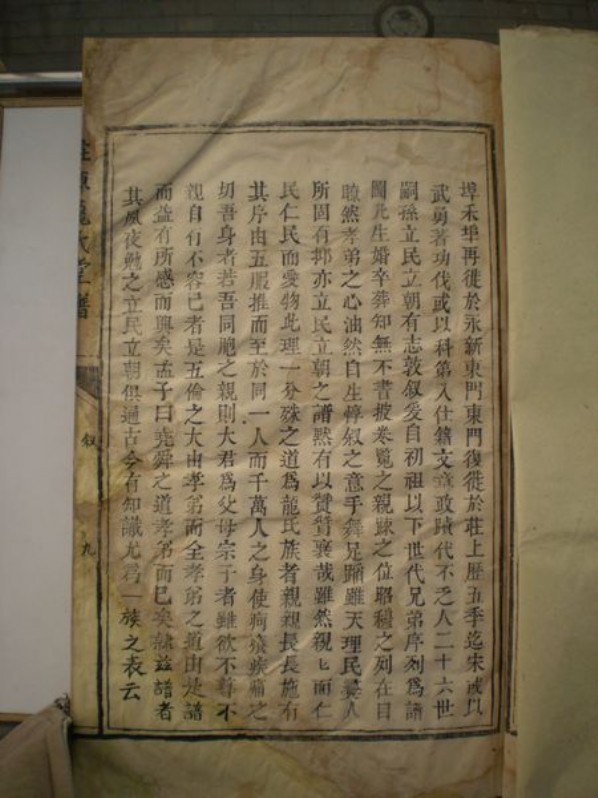 埠禾埠再徙於永新東門東門復徙於莊上歷五季迄宋或以
武勇著功伐或以科第入仕籍文章政蹟代不乏人二十六世
嗣孫立民立朝有志敦叙爰自初祖以下世代兄弟序列爲譜
圖凡生婚卒葬知無不書披卷覧之親踈之位昭穆之列在目
瞭然孝弟之心油然自生惇叙之意手舞足蹈雖天理民彝人
所固有抑亦立民立朝之譜黙有以贊襄哉雖然親匕而仁
民仁民而愛物此理一分殊之道爲龍氏族者親親長長施有
其序由五服推而至於同一人而千萬人之身使痾癢疾痛之
切吾身者若吾同胞之親則大君爲父母宗子者雖欲不尊不
親自有不容已者是五倫之大由孝弟而全孝弟之道由是譜
而益有所感而興矣孟子曰堯舜之道孝弟而已矣隸兹譜者
其夙夜勉之立民立朝俱通古今有知識尤爲一族之表云
叙
九